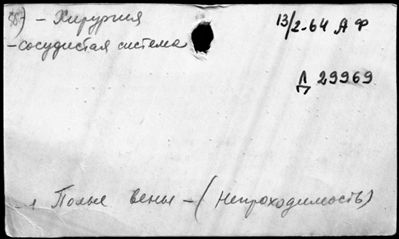 587 - Хирургия
13/2-64 АФ
- сосудистая система
Д/П 29969
1 Полые вены - (Непроходимость)